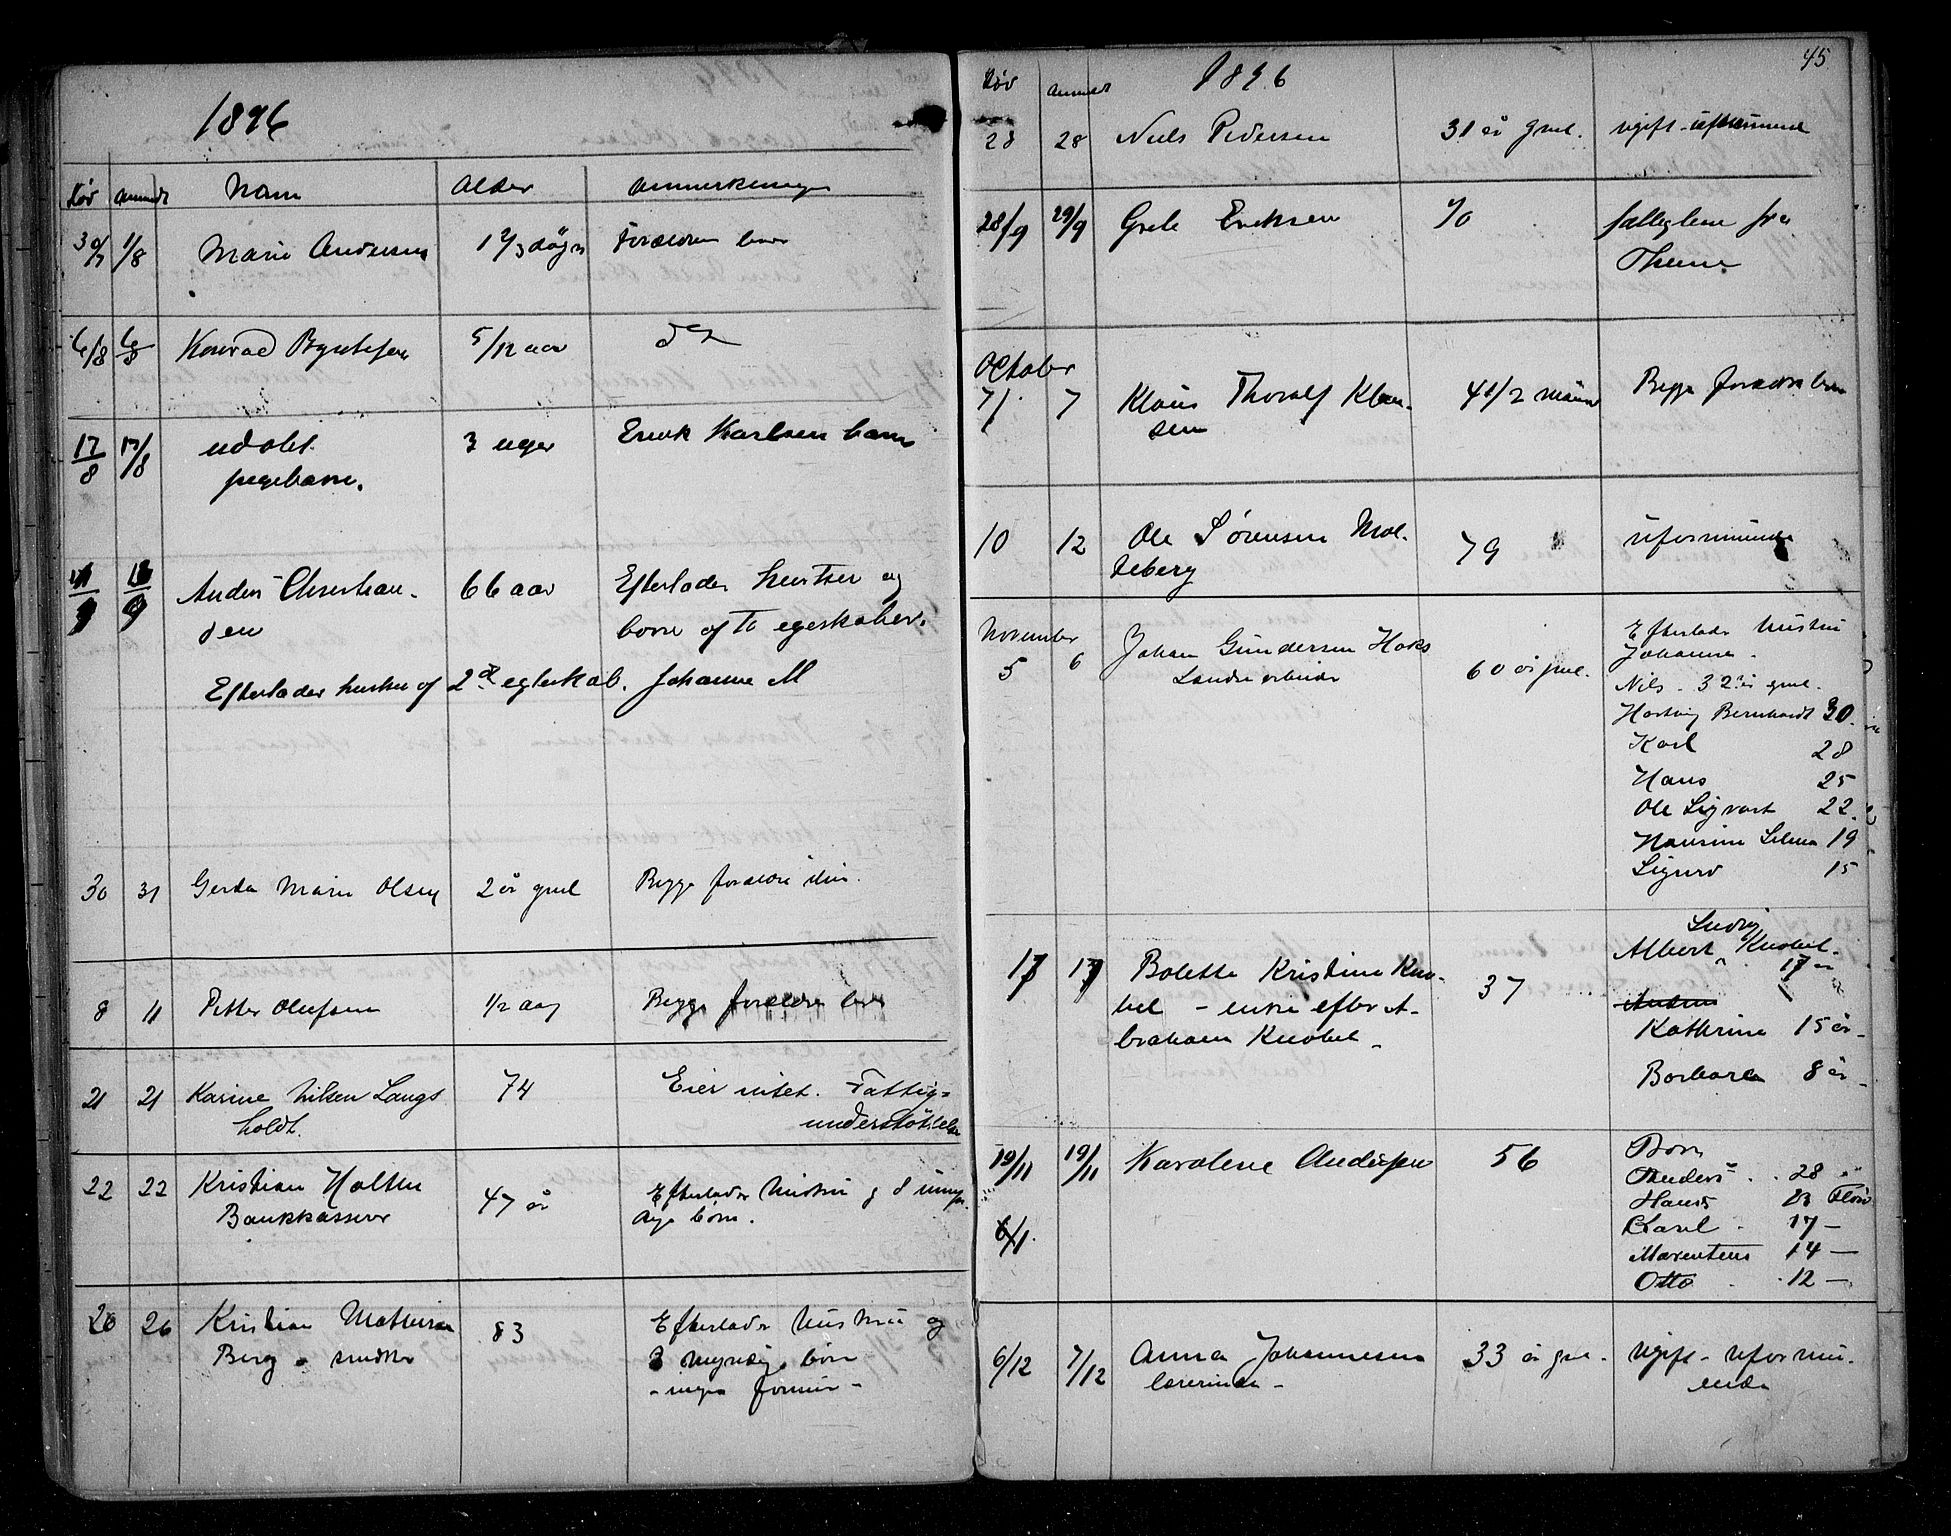 1896
Död Anmeldt Navn Alder Anmerkninger
30/7 1/8 Marie Andersen 1 2/3 døgn Forældren lever
6/8 6/8 Konrad 5/12 aar do
17/8 17/8 udøbt 3 uger Erick Karlsen barn
pigebarn.
9 9 Anders Christian- 66 aar Efterlader hustru og
sen børn af to egteskaber.
Efterlader hustru af 2det egteskab. Johanne M
30 31 Gerda Marie Olsen 2 år gml Begge forældre
8 11 Petter Olufsen 1/2 aar Begge forældre lever
21 21 Karine Nilsen Langs 74 Eier intet. Fattig-
holdt. understøttelse
22 22 Kristian Holter 47 år Efterlader hustru og 8 umyn-
Bankkasserer dige børn.
26 26 Kristian Mathisen 83 Efterlader hustru og
Berg - snedker 3 myndige børn
- ingen formue -
45
Död Anmeldt 1896
28 28 Niels Pedersen 31 år gml. ugift - uformuende
28/9 29/9 Grete Eriksen 70 fattiglem fra
October
7/ 7 Klaus Thoralf Klau- 4 1/2 måned Begge forældre lever
sen
10 12 Ole Sørensen Mol- 79 uformuende
teberg
November
5 6 Johan Gundersen Hoks 60 år gml. Efterlader hustru
Johanne -
Nils - 32 år gml.
Hartvig Bernhardt 30
Karl 28
Hans 25
Ole Sigvart 22
Hansine Selma 19
Sigurd 15
Ludvig
17 17 Bolette Kristine Kno- 37 Albert Knobel -
17 år
bel - enke efter A-
braham Knobel - Kathrine 15 år -
Barbara 8 år -
19/11 19/11 Karolene Andersen 56 Børn
Anders 28 år
Hans 23
Karl 17 -
6/1. Marentius 14 -
Otto 12 -
6/12 7/12 Anna Johannesen 33 år gml - Ugift - uformu-
lærerinde - ende